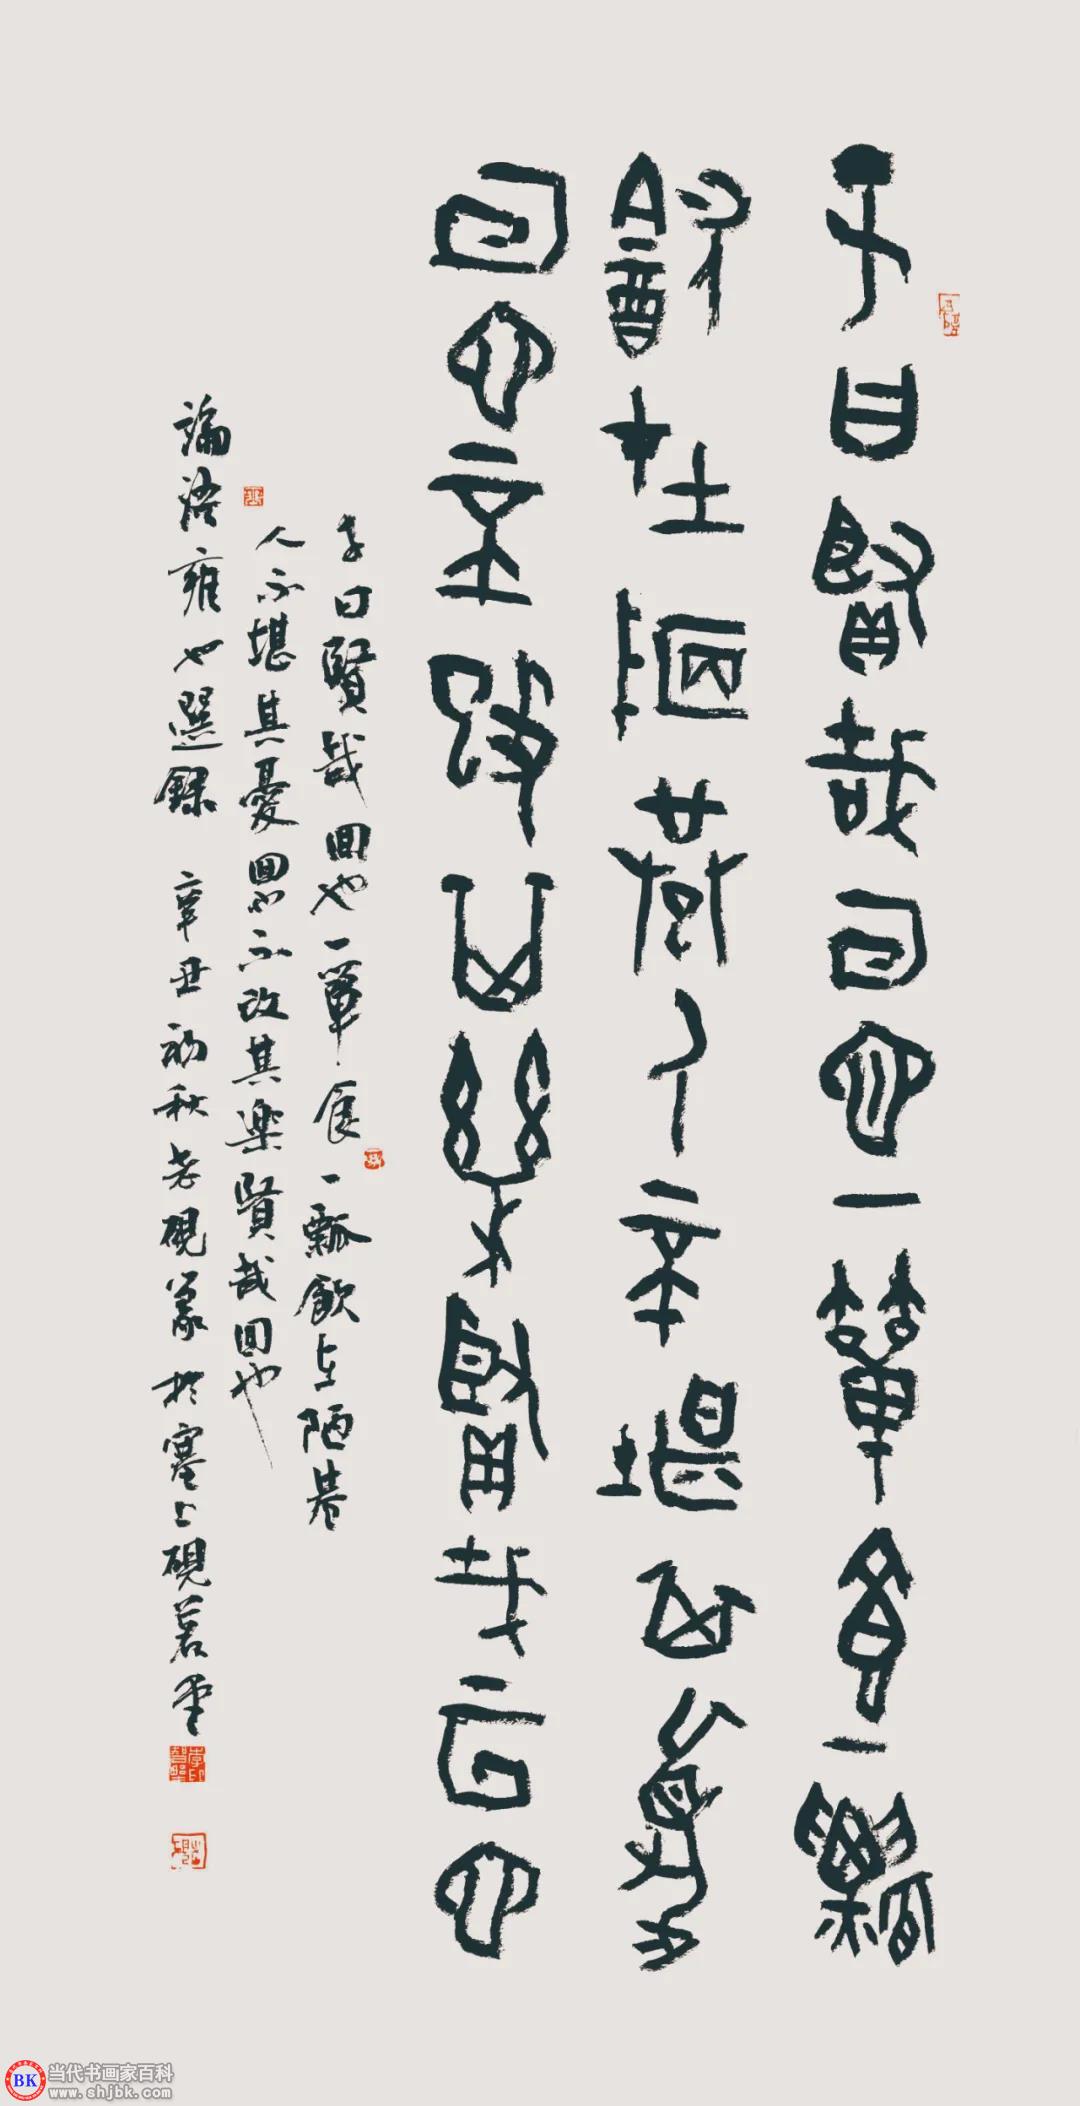 子曰賢哉回也一簞食一瓢
飲在陋巷人不堪其憂
回也不改其樂賢哉回也
子曰賢哉回也一簞食一瓢飲在陋巷
人不堪其憂回也不改其樂賢哉回也
論語雍也選錄 辛丑初秋老硯篆於塞上硯茗堂
BK 当代书画家百科
www.shjbk.com